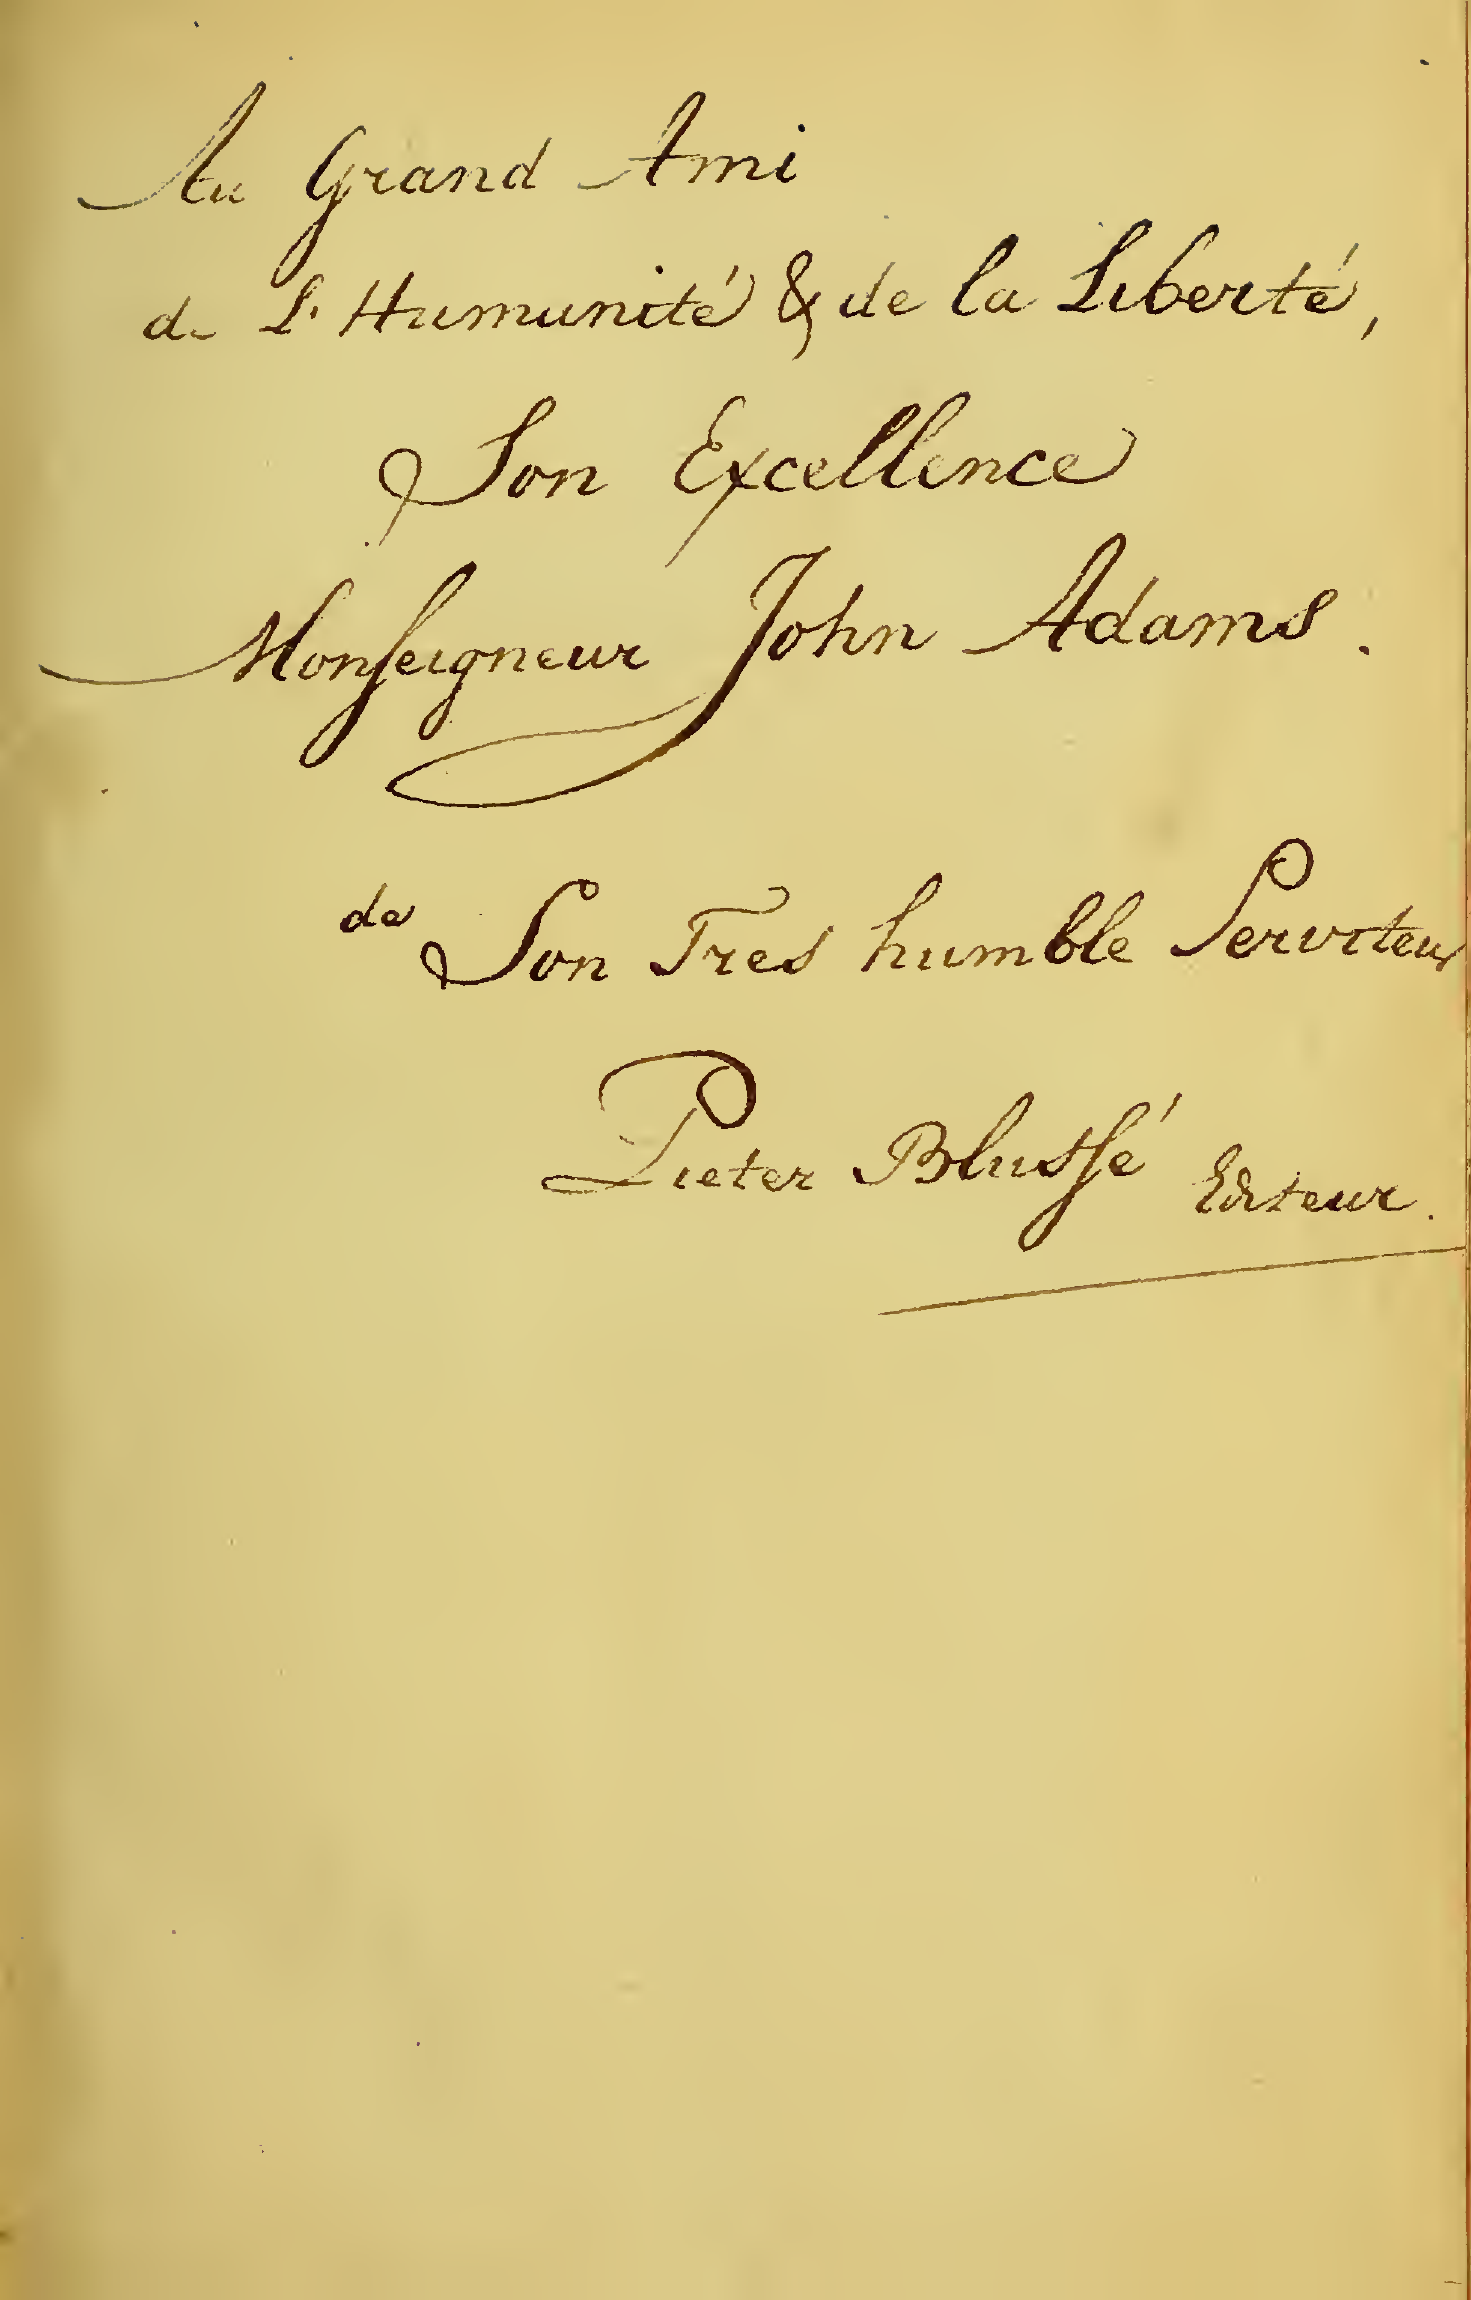 Au Grand Ami
de L'Humanité & de la Liberté,
Son Excellence
Monseigneur John Adams.
de Son Tres humble Serviteur
Pieter Blussé Editeur.